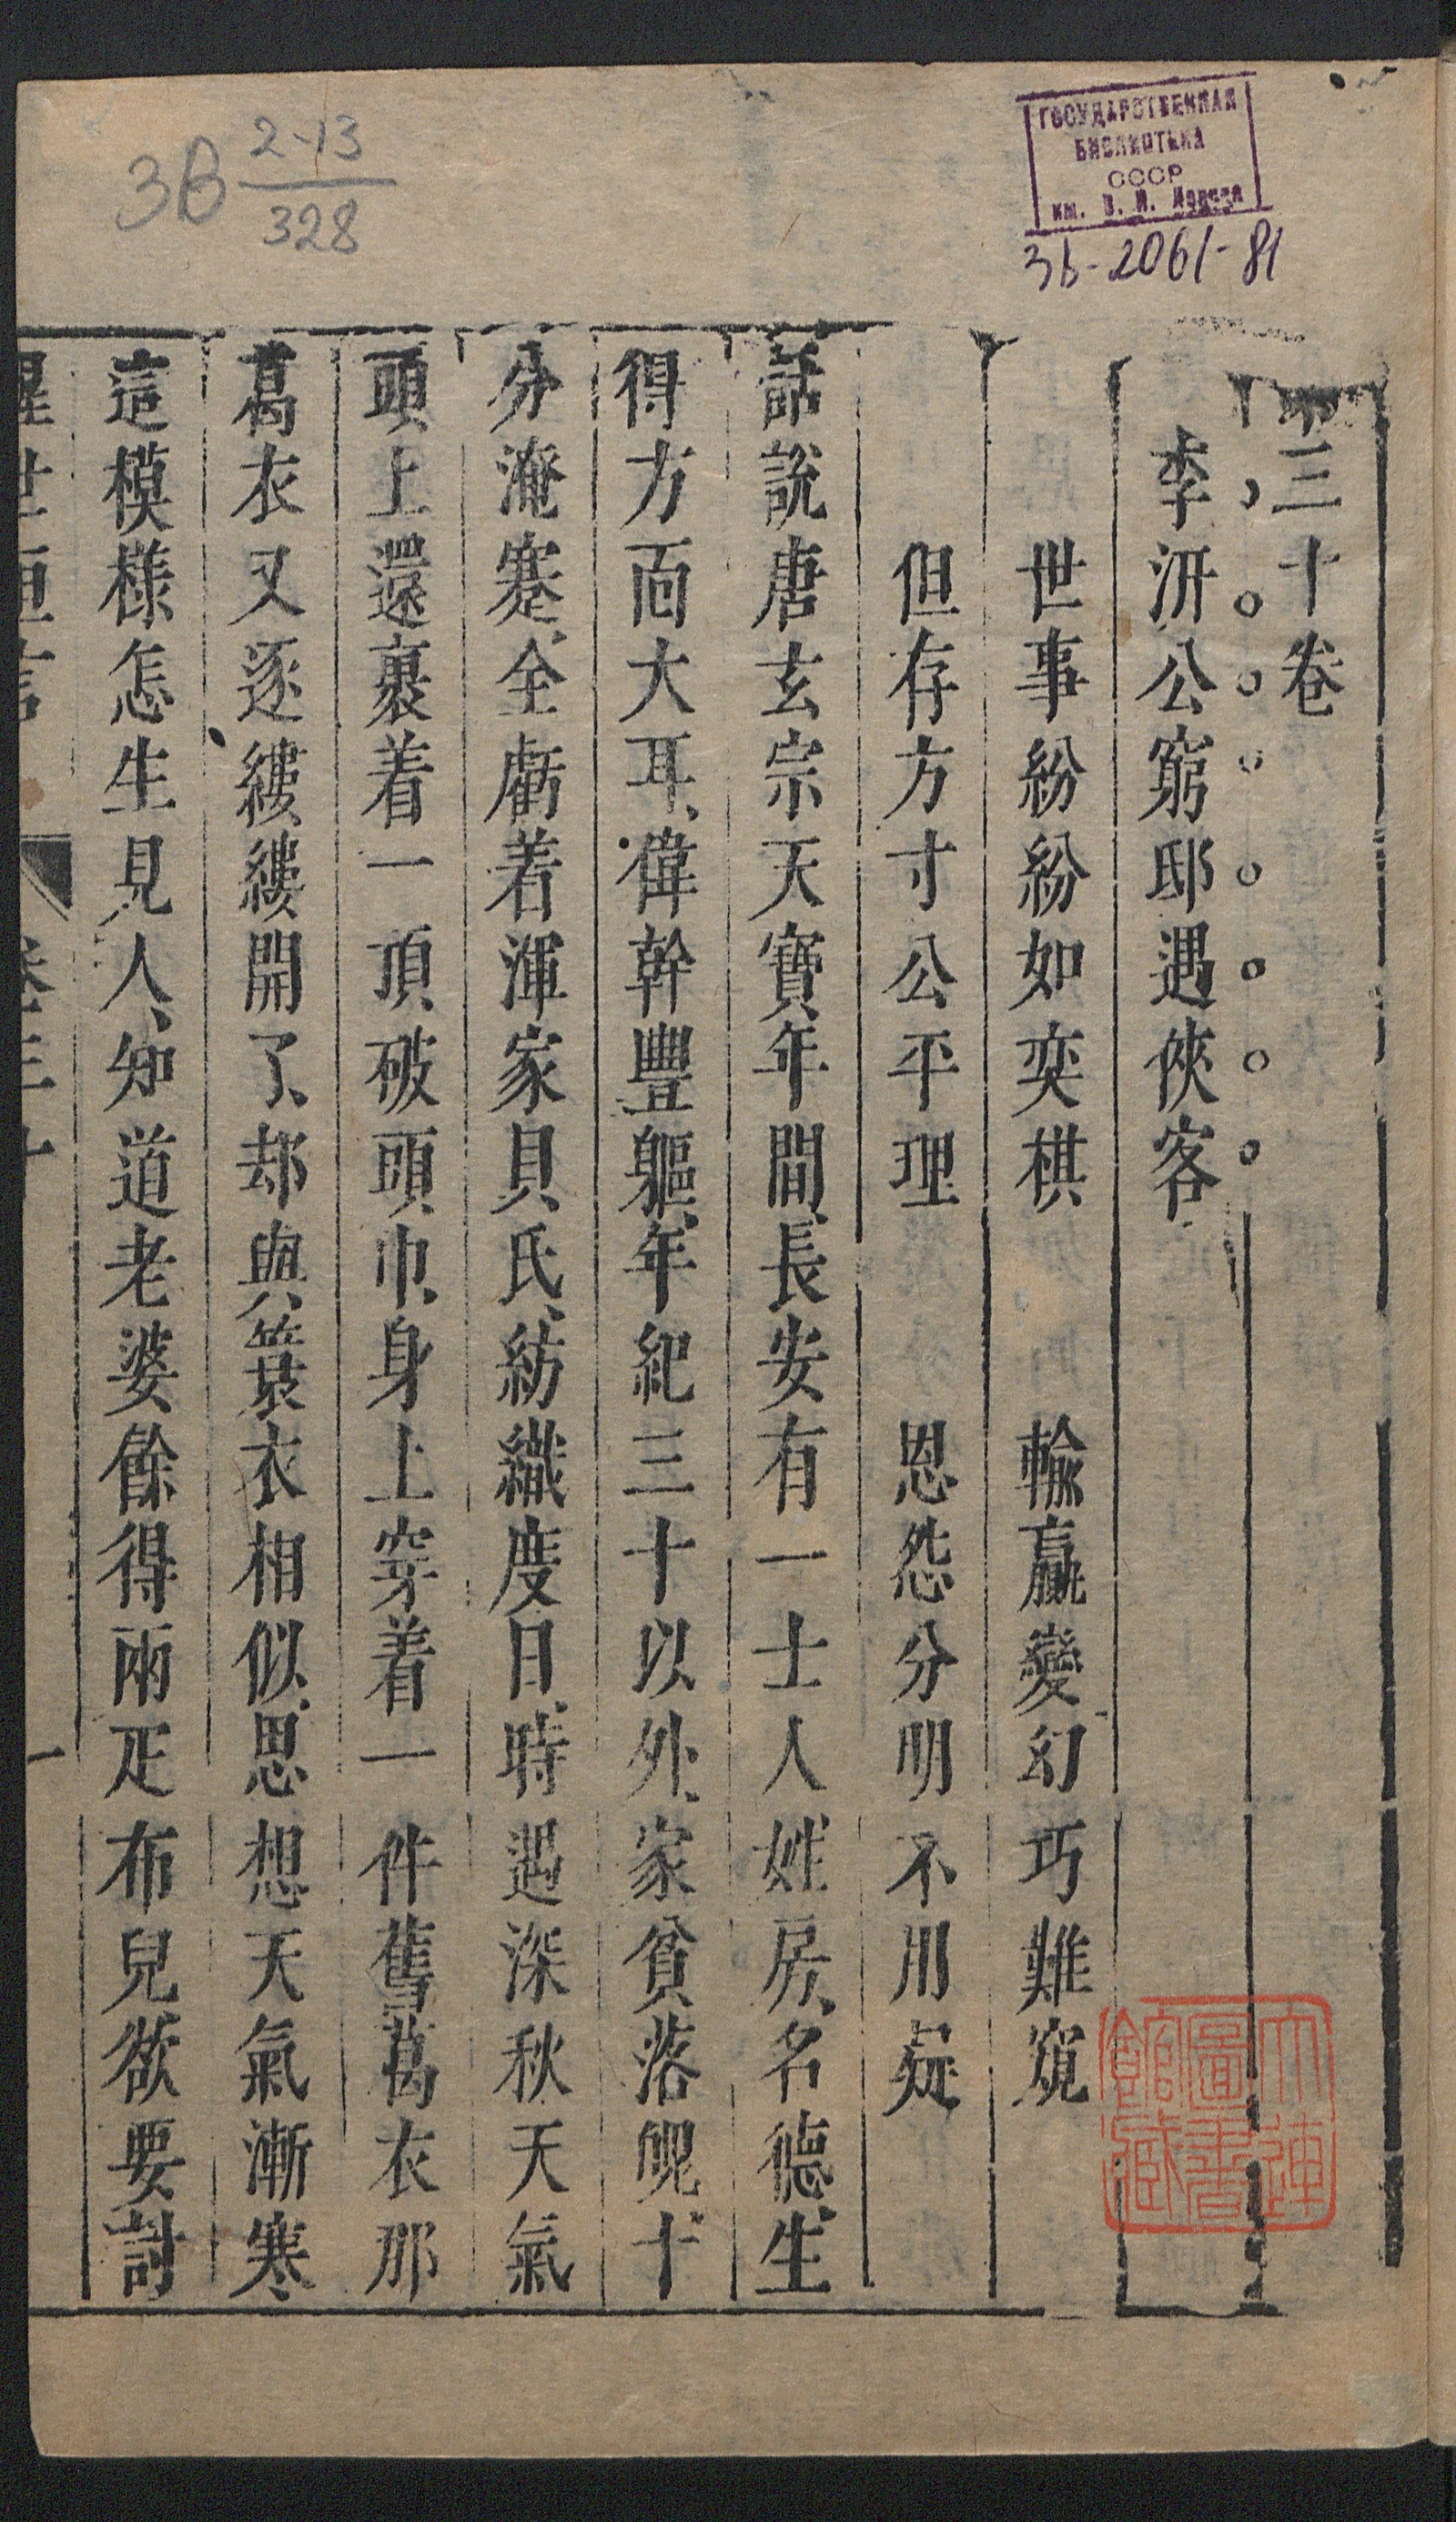 3B 2-13
328
ГОСУДАРСТВЕННАЯ
БИБЛИОТЕКА
СССР
им. В. И. Ленина
3b-2061-81
三十卷
李汧公窮邸遇俠客
世事紛紛如奕棋　輸贏變幻巧難窺
但存方寸公平理　恩怨分明不用疑
話說唐玄宗天寶年間、長安有一士人姓房、名德、生
得方面大耳、偉幹豐軀、年紀三十以外、家貧落魄、十
分淹蹇、全虧着渾家貝氏、紡織度日、時遇深秋天氣
頭上還裹着一頂破頭巾、身上穿着一件舊葛衣那
葛衣又逐縷縷開了、却與簑衣相似、思想天氣漸寒
這模樣怎生見人、知道老婆餘得兩疋布兒欲要討
醒世恒言　卷三十　一
大連
圖書
館藏